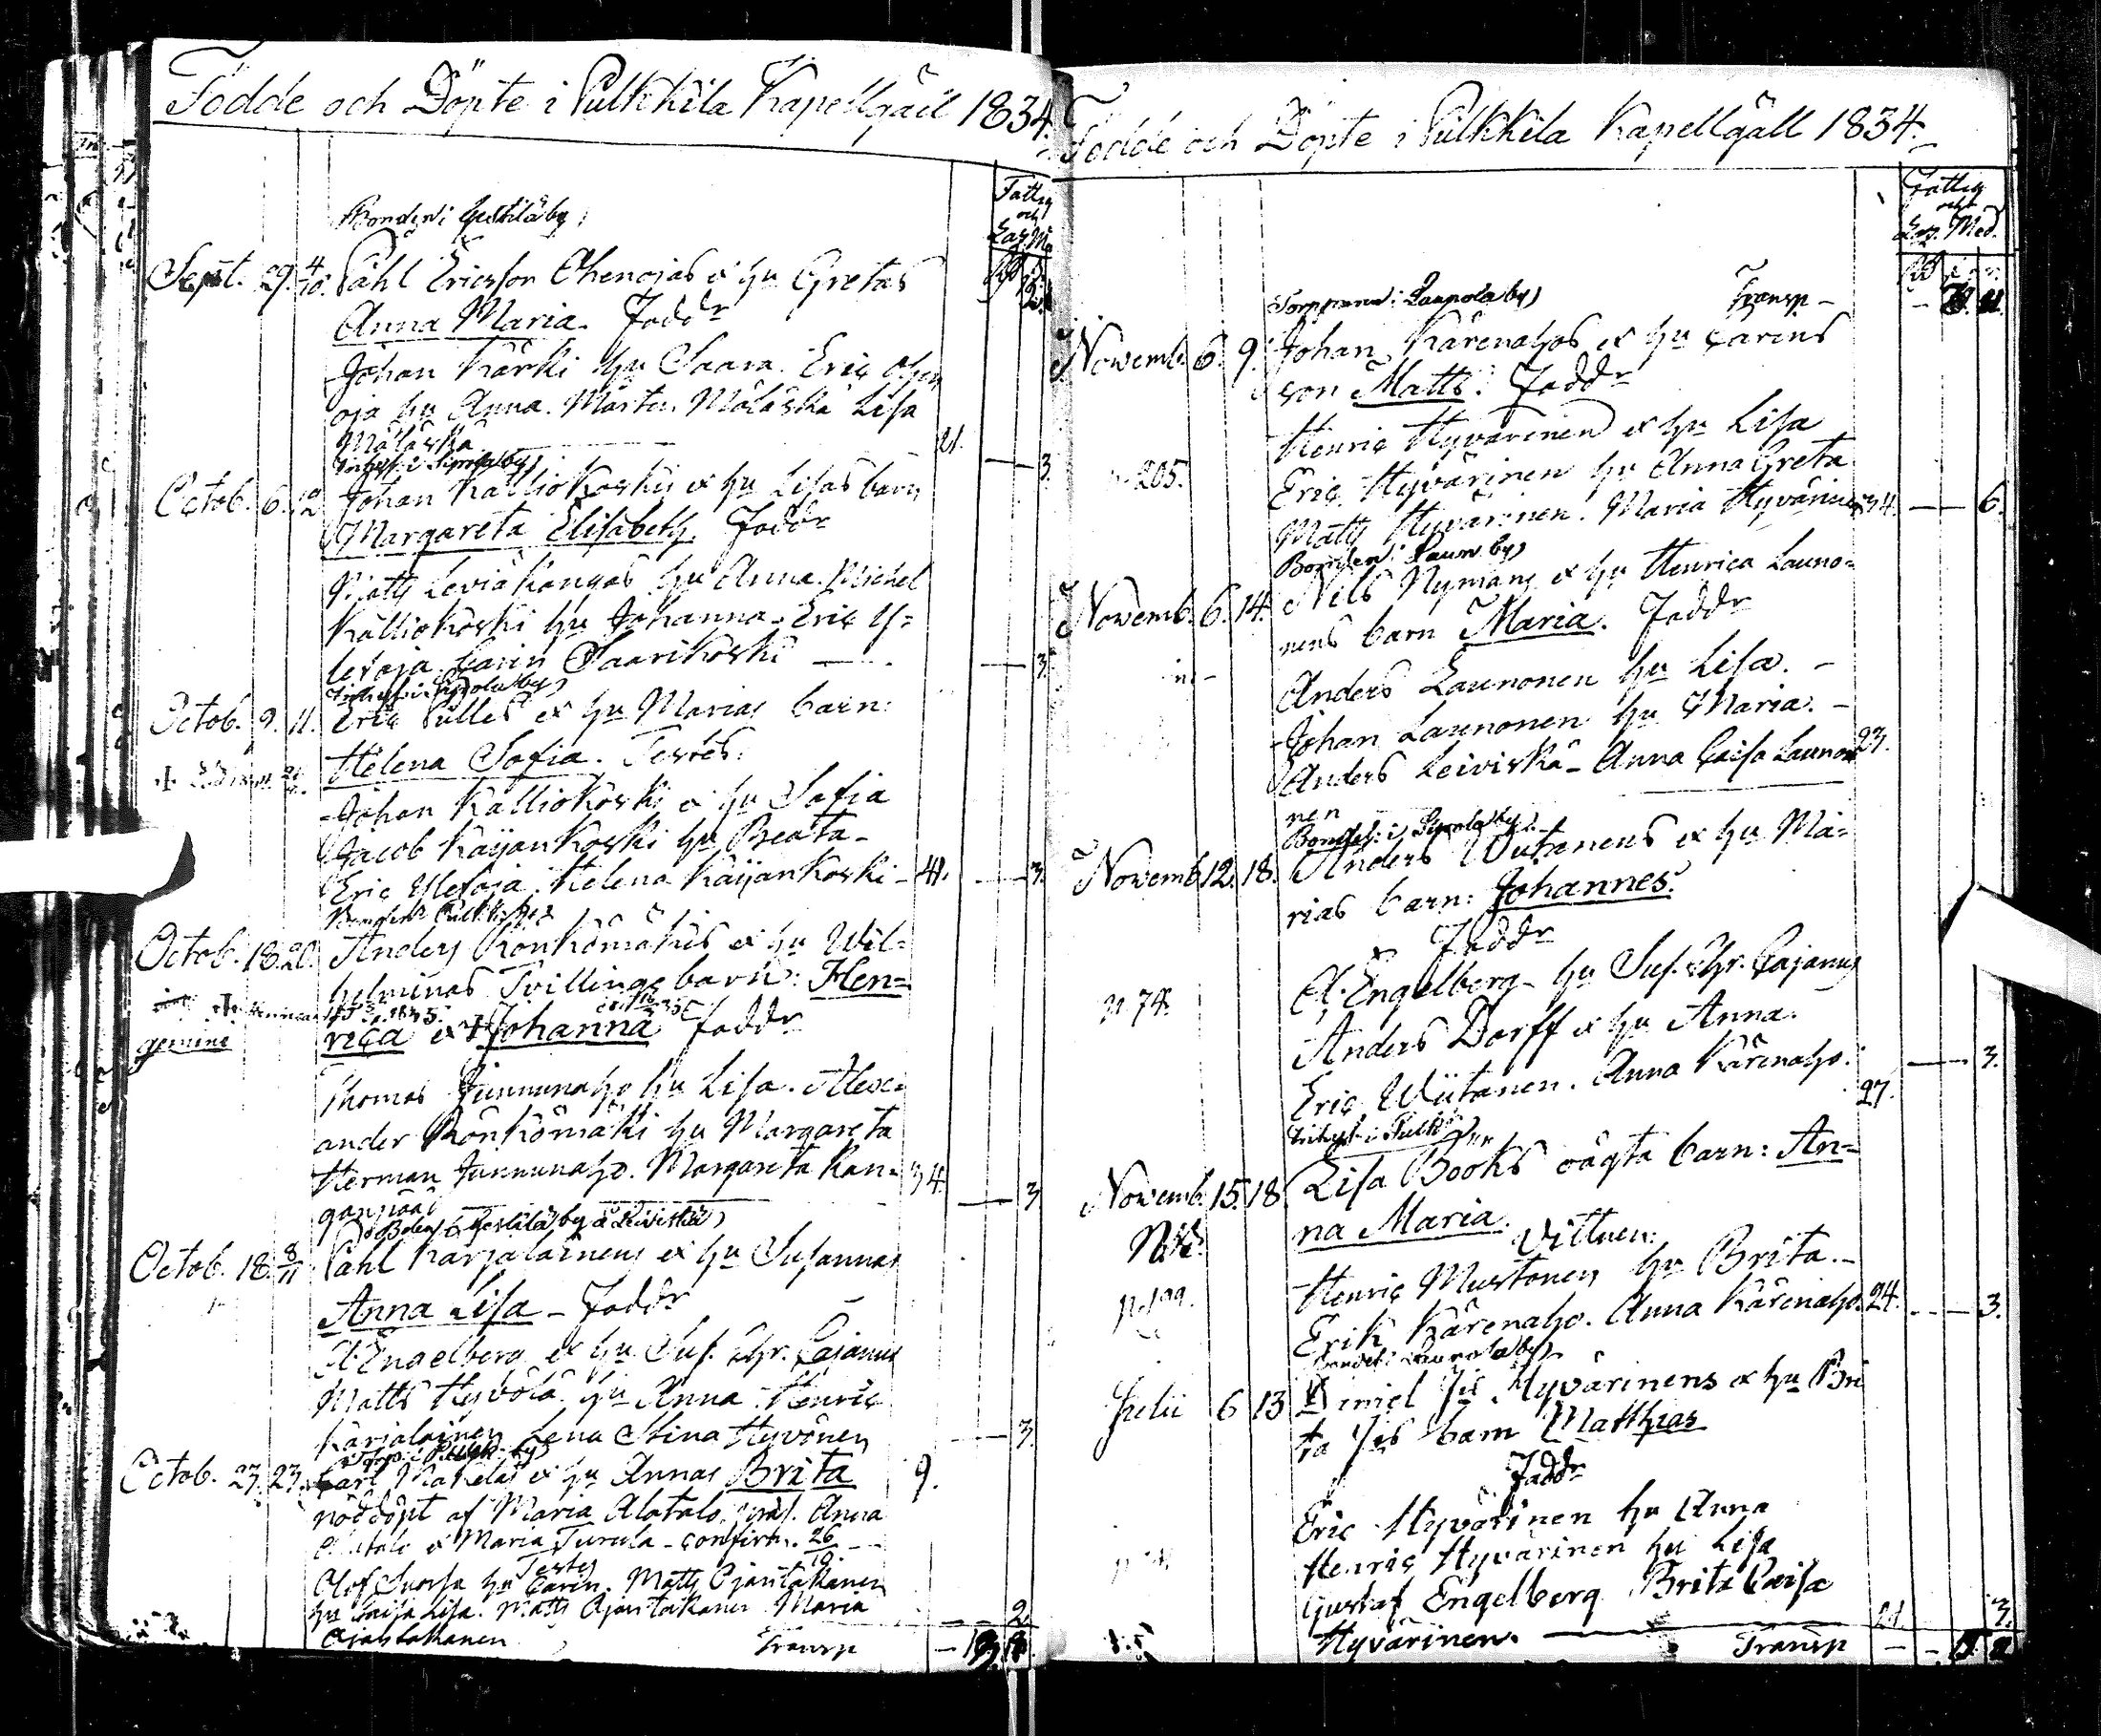 Födde och Döpte i Pulkkila Kapellgäll 1834.
Fattig
och
Laz. Me
Bonden i by
Sept. 29. 4/10. Påhl Ericsson Ohenojas & hu Gretas
Anna Maria. Faddr
Johan Kärki hu Saara. Eric Ohen
oja hu Anna. Mårten Mäläskä Lisa
Mäläskä 21. 3.
Inhys. i by
Octob. 6. 12. Johan Kalliokoskis & hu Lisas barn
Margareta Elisabeth. Faddr
Matts Leviäkangas hu Anna. Michel
Kalliokoski hu Johanna. Eric Y=
lexoja. Carin Saarikoski 3.
Octob. 9. 11. Eric Pulles & hu Marias barn:
Helena Sofia. Testes:
Johan Kalliokoski & hu Sofia
Jacob Kaijankoski hu Beata
Eric Ylexoja. Helena Kaijankoski 41. 3.
Bonden
Octob. 18. 20. Anders Könkömäkis & hu Wil=
helminas Tvillingebarn: Hen=
gemini
rica & Johanna Faddr
Thomas Junnunaho hu Lisa. Alex=
ander Könkömäki hu Margareta
Herman Junnunaho. Margareta Kan= 34.
ganpää 3
Octob. 18. 8/11 Påhl Karjalainens & hu Susannas
Anna Lisa - Faddr
A. Engelberg & hu Sus. Chr. Cajanus
Matts Hyvölä hu Anna. Henric
Karjalainen Lena Stina Hyvönen 3.
Octob. 23. 23. Carl Mäkeläs & hu Annas Brita 9.
nöddöpt af Maria Alatalo, Anna
Alatalo & Maria Turula - confirm. 26/10.
Testes
Olof Suorsa hu Carin. Matts Ojantakanen
hu Caisa Lisa. Matts Ojantakanen Maria 2.
Ojantakanen Transp
Födde och Döpte i Pulkkila Kapellgäll 1834.
Fattig
och
Laz. Med.
Torpparen i by Transp -
Novemb. 6. 9. Johan Kärenahos & hu Carins
son Matts. Faddr
Henric Hyvärinen & hu Lisa
205. Eric Hyvärinen hu Anna Greta
Matts Hyvärinen. Maria Hyvärinen 34. 6.
Bonden i by
Novemb. 6. 14. Nils Nymans & hu Henrica Launo=
nens barn Maria. Faddr
Anders Launonen hu Lisa.
Johan Launonen hu Maria.
Anders Leiviskä - Anna Caisa Launo 23.
nen
Novemb. 12. 18. Anders Wutanens & hu Ma=
rias barn: Johannes.
Faddr
A. Engelberg hu Sus. Chr. Cajanus
n. 74. Anders Dorff & hu Anna.
Eric Wiitanen. Anna Kärenaho. 3.
27.
Inhys. i Pulk
Novemb. 15. 18. Lisa Books oägta barn: An=
na Maria. Vittnen:
Henric Mustonen hu Brita.
Erik Kärenaho. Anna Kärenaho. 24. 3.
Julii 6 13 Daniel Js Hyvärinens & hu Bri
ta Jds barn Matthias
Faddr
Eric Hyvärinen hu Anna
Henric Hyvärinen hu Lisa
Gustaf Engelberg Brita Caisa 3.
Hyvärinen. Transp